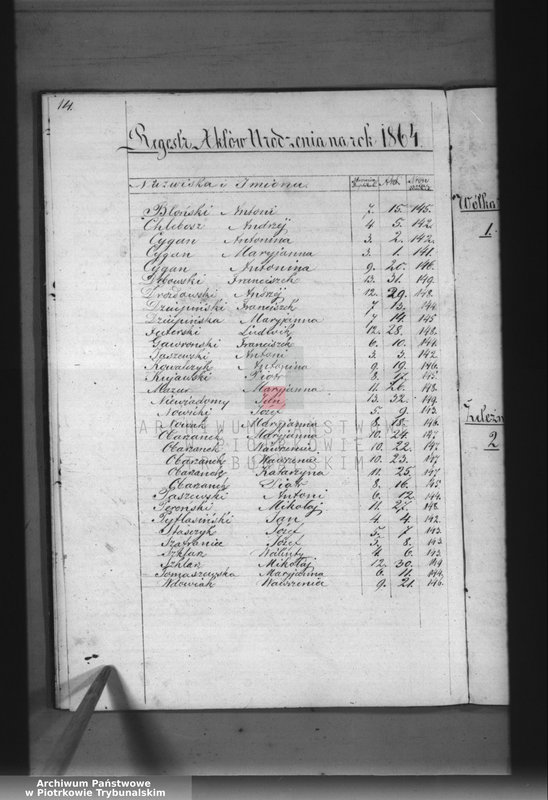 Regestr Aktów Urodzenia na rok 1864
Nazwiska i Imiona. Stronica Akt Nro
Błoński Antoni 7. 15. 145.
Chlebosz Andrzéj 4 5. 142.
Cygan Antonina 3. 2. 142.
Cygan Maryjanna 3. 1. 141.
Cygan Antonina 9. 20. 146.
Franciszek 13. 31. 149.
Drozdowski Andrzéj 12. 29. 148.
Dziupiński Franciszek 7 13. 144
Dziupińska Maryjanna 7 14. 145
Ludwik 12. 28. 148.
Gawroński Franciszek 6. 10. 144.
Jaszewski Antoni 3. 3. 142
Kowalczyk Antonina 9. 19. 146.
Kujawski Piotr 8. 17. 145
Mazur Maryjanna 11. 26. 148.
Niewiadomy Jan 13. 32. 149.
Nowicki Józef 5. 9. 143.
Nowak Maryjanna 8. 18. 146.
Obaranek Maryjanna 10. 24. 147
Obaranek Wawrzeniec 10. 22. 147.
Obaranek Wawrzeniec 10. 23. 147
Obaranek Katarzyna 11. 25. 147
Obaranek Piotr 8. 16. 145
Paszewski Antoni 6. 12. 144.
Peroński Mikołaj 11. 27. 148.
Pytlasiński Jan 4. 4. 142.
Stasczyk Józef 5. 7. 143
Szafraniec Józef 5. 8. 143
Szklar Walenty 4 6. 143.
Szklar Mikołaj 12. 30. 149
Tomaszewska Maryjanna 6. 11. 144.
Wdowiak Wawrzeniec 9. 21. 146.
Wólka
1.
Żelezn
2
ARCHIWUM PAŃSTWOWE
W PIOTRKOWIE
TRYBUNALSKIM
Archiwum Państwowe
w Piotrkowie Trybunalskim